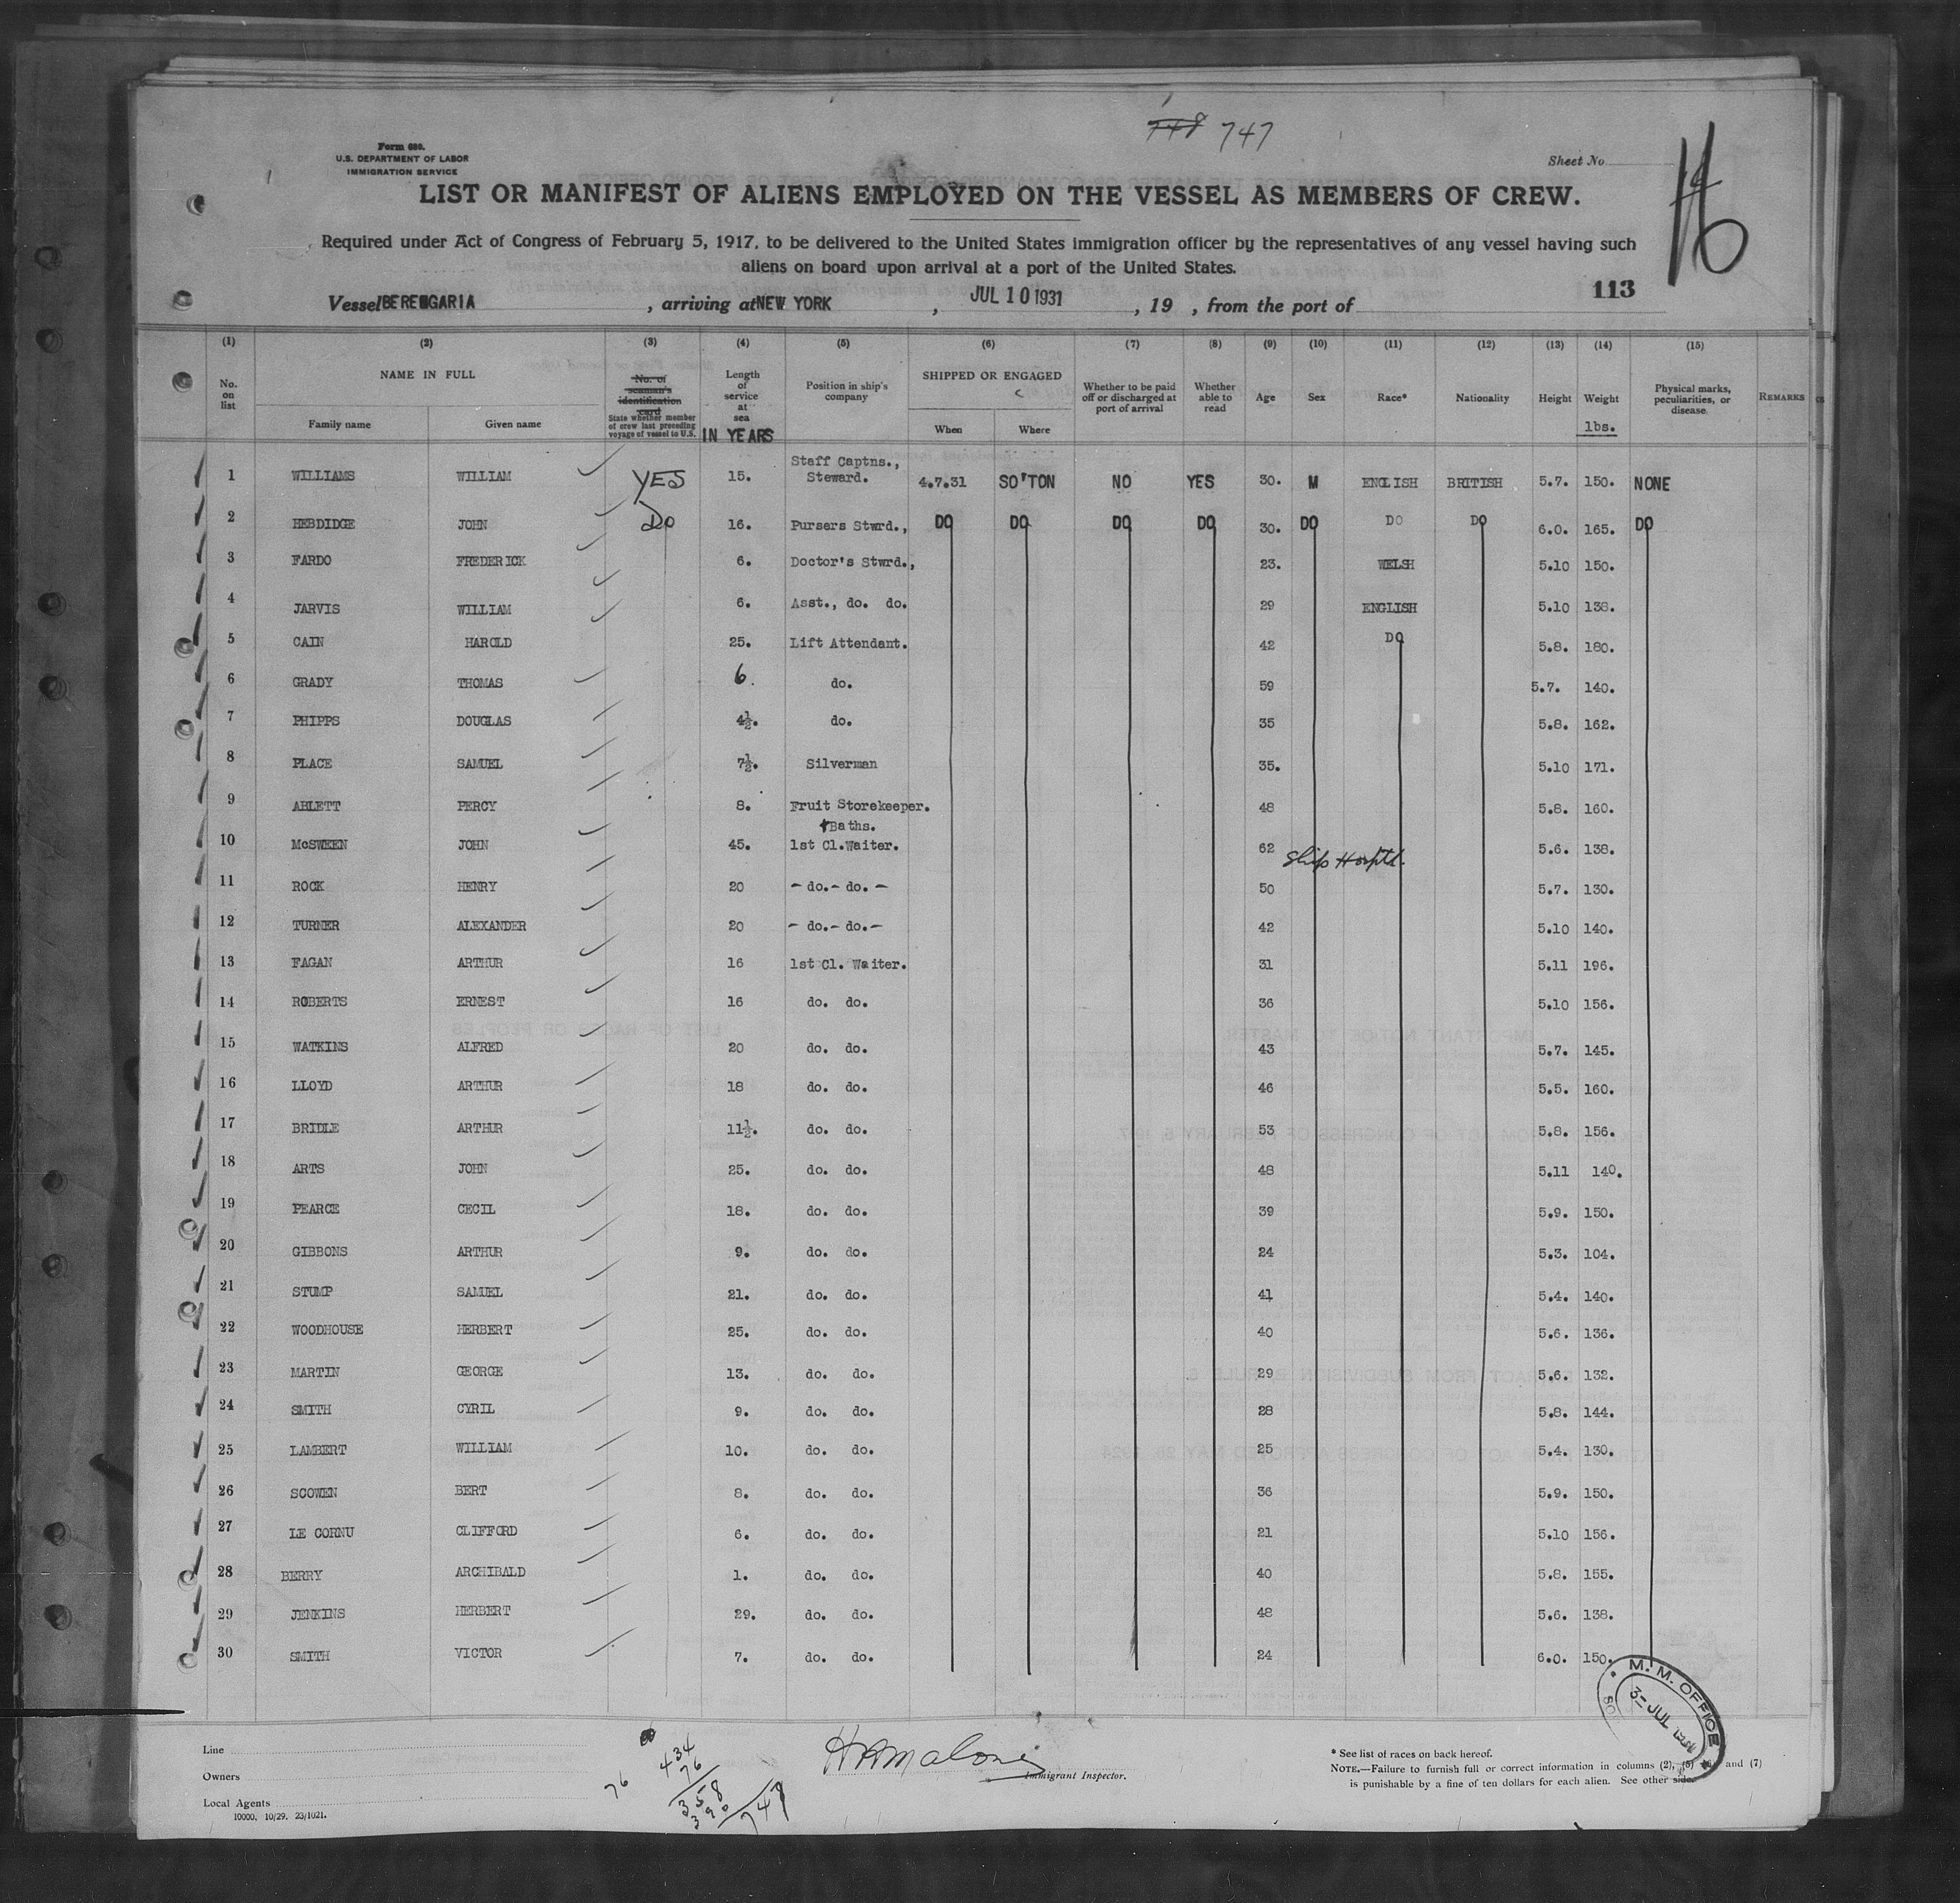 748 747
Form 680.
U.S. DEPARTMENT OF LABOR
IMMIGRATION SERVICE
Sheet No.
16
LIST OR MANIFEST OF ALIENS EMPLOYED ON THE VESSEL AS MEMBERS OF CREW.
Required under Act of Congress of February 5, 1917, to be delivered to the United States immigration officer by the representatives of any vessel having such
aliens on board upon arrival at a port of the United States.
113
Vessel BERENGARIA, arriving at NEW YORK, JUL 10 1931, 19 , from the port of
(1) (2) (3) (4) (5) (6) (7) (8) (9) (10) (11) (12) (13) (14) (15)
No. on list NAME IN FULL Family name Given name No. of seaman's identification card State whether member of crew last preceding voyage of vessel to U.S. Length of service at sea IN YEARS Position in ship's company SHIPPED OR ENGAGED When Where Whether to be paid off or discharged at port of arrival Whether able to read Age Sex Race* Nationality Height Weight lbs. Physical marks, peculiarities, or disease REMARKS
1 WILLIAMS WILLIAM YES 15. Staff Captns., Steward. 4.7.31 SO'TON NO YES 30. M ENGLISH BRITISH 5.7. 150. NONE
2 HEBDIDGE JOHN Do 16. Pursers Stwrd., DO DO DO DO 30. DO DO DO 6.0. 165. DO
3 FARDO FREDERICK 6. Doctor's Stwrd., 23. WELSH 5.10 150.
4 JARVIS WILLIAM 6. Asst., do. do. 29 ENGLISH 5.10 138.
5 CAIN HAROLD 25. Lift Attendant. 42 DO 5.8. 180.
6 GRADY THOMAS 6. do. 59 5.7. 140.
7 PHIPPS DOUGLAS 4½. do. 35 5.8. 162.
8 PLACE SAMUEL 7½. Silverman 35. 5.10 171.
9 ABLETT PERCY 8. Fruit Storekeeper. 48 5.8. 160.
10 McSWEEN JOHN 45. +Baths. 1st Cl.Waiter. 62 Ship Hosptl. 5.6. 138.
11 ROCK HENRY 20 - do.- do. - 50 5.7. 130.
12 TURNER ALEXANDER 20 - do.- do.- 42 5.10 140.
13 FAGAN ARTHUR 16 1st Cl. Waiter. 31 5.11 196.
14 ROBERTS ERNEST 16 do. do. 36 5.10 156.
15 WATKINS ALFRED 20 do. do. 43 5.7. 145.
16 LLOYD ARTHUR 18 do. do. 46 5.5. 160.
17 BRIDLE ARTHUR 11½. do. do. 53 5.8. 156.
18 ARTS JOHN 25. do. do. 48 5.11 140.
19 PEARCE CECIL 18. do. do. 39 5.9. 150.
20 GIBBONS ARTHUR 9. do. do. 24 5.3. 104.
21 STUMP SAMUEL 21. do. do. 41 5.4. 140.
22 WOODHOUSE HERBERT 25. do. do. 40 5.6. 136.
23 MARTIN GEORGE 13. do. do. 29 5.6. 132.
24 SMITH CYRIL 9. do. do. 28 5.8. 144.
25 LAMBERT WILLIAM 10. do. do. 25 5.4. 130.
26 SCOWEN BERT 8. do. do. 36 5.9. 150.
27 LE CORNU CLIFFORD 6. do. do. 21 5.10 156.
28 BERRY ARCHIBALD 1. do. do. 40 5.8. 155.
29 JENKINS HERBERT 29. do. do. 48 5.6. 138.
30 SMITH VICTOR 7. do. do. 24 6.0. 150.
M. M. OFFICE
3 - JUL 1931
Line
Owners
Local Agents
10000, 10/29. 23/1021.
76
434
76
358
390
748
HRMalone
Immigrant Inspector.
* See list of races on back hereof.
NOTE.—Failure to furnish full or correct information in columns (2), (5) and (7)
is punishable by a fine of ten dollars for each alien. See other side.